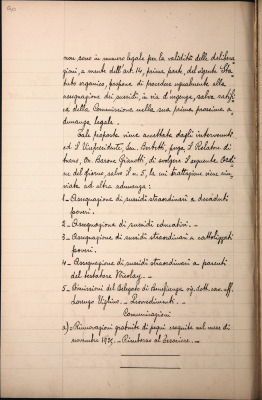 non sono in numero legale per la validità delle delibera
zioni, a mente dell'art. 14, prima parte, del vigente Sta
tuto organico, propone di procedere ugualmente alla
assegnazione dei sussidi, in via d'urgenza, salvo ratifi
ca della Commissione nella sua prima prossima a
dunanza legale.
Tale proposta viene accettata dagli intervenuti
ed il Vicepresidente, funge il Relatore di
turno, On. Barone Gianotti, di svolgere il seguente Ordi
ne del giorno, salvo il n. 5, la cui trattazione viene rin
viata ad altra adunanza:
1 - Assegnazione di sussidi straordinari a decaduti
poveri.
2 - Assegnazione di sussidi educativi. -
3 - Assegnazione di sussidi straordinari a cattolizzati
poveri.
4 - Assegnazione di sussidi straordinari a parenti
del testatore -
5 - Dimissioni del Delegato di Beneficenza sig. dott. cav. uff.
Lorenzo Viglino. - Provvedimenti. -
Comunicazioni
a) - Rinnovazioni gratuite di pegni eseguite nel mese di
novembre 1935. - Rimborso al Tesoriere. -